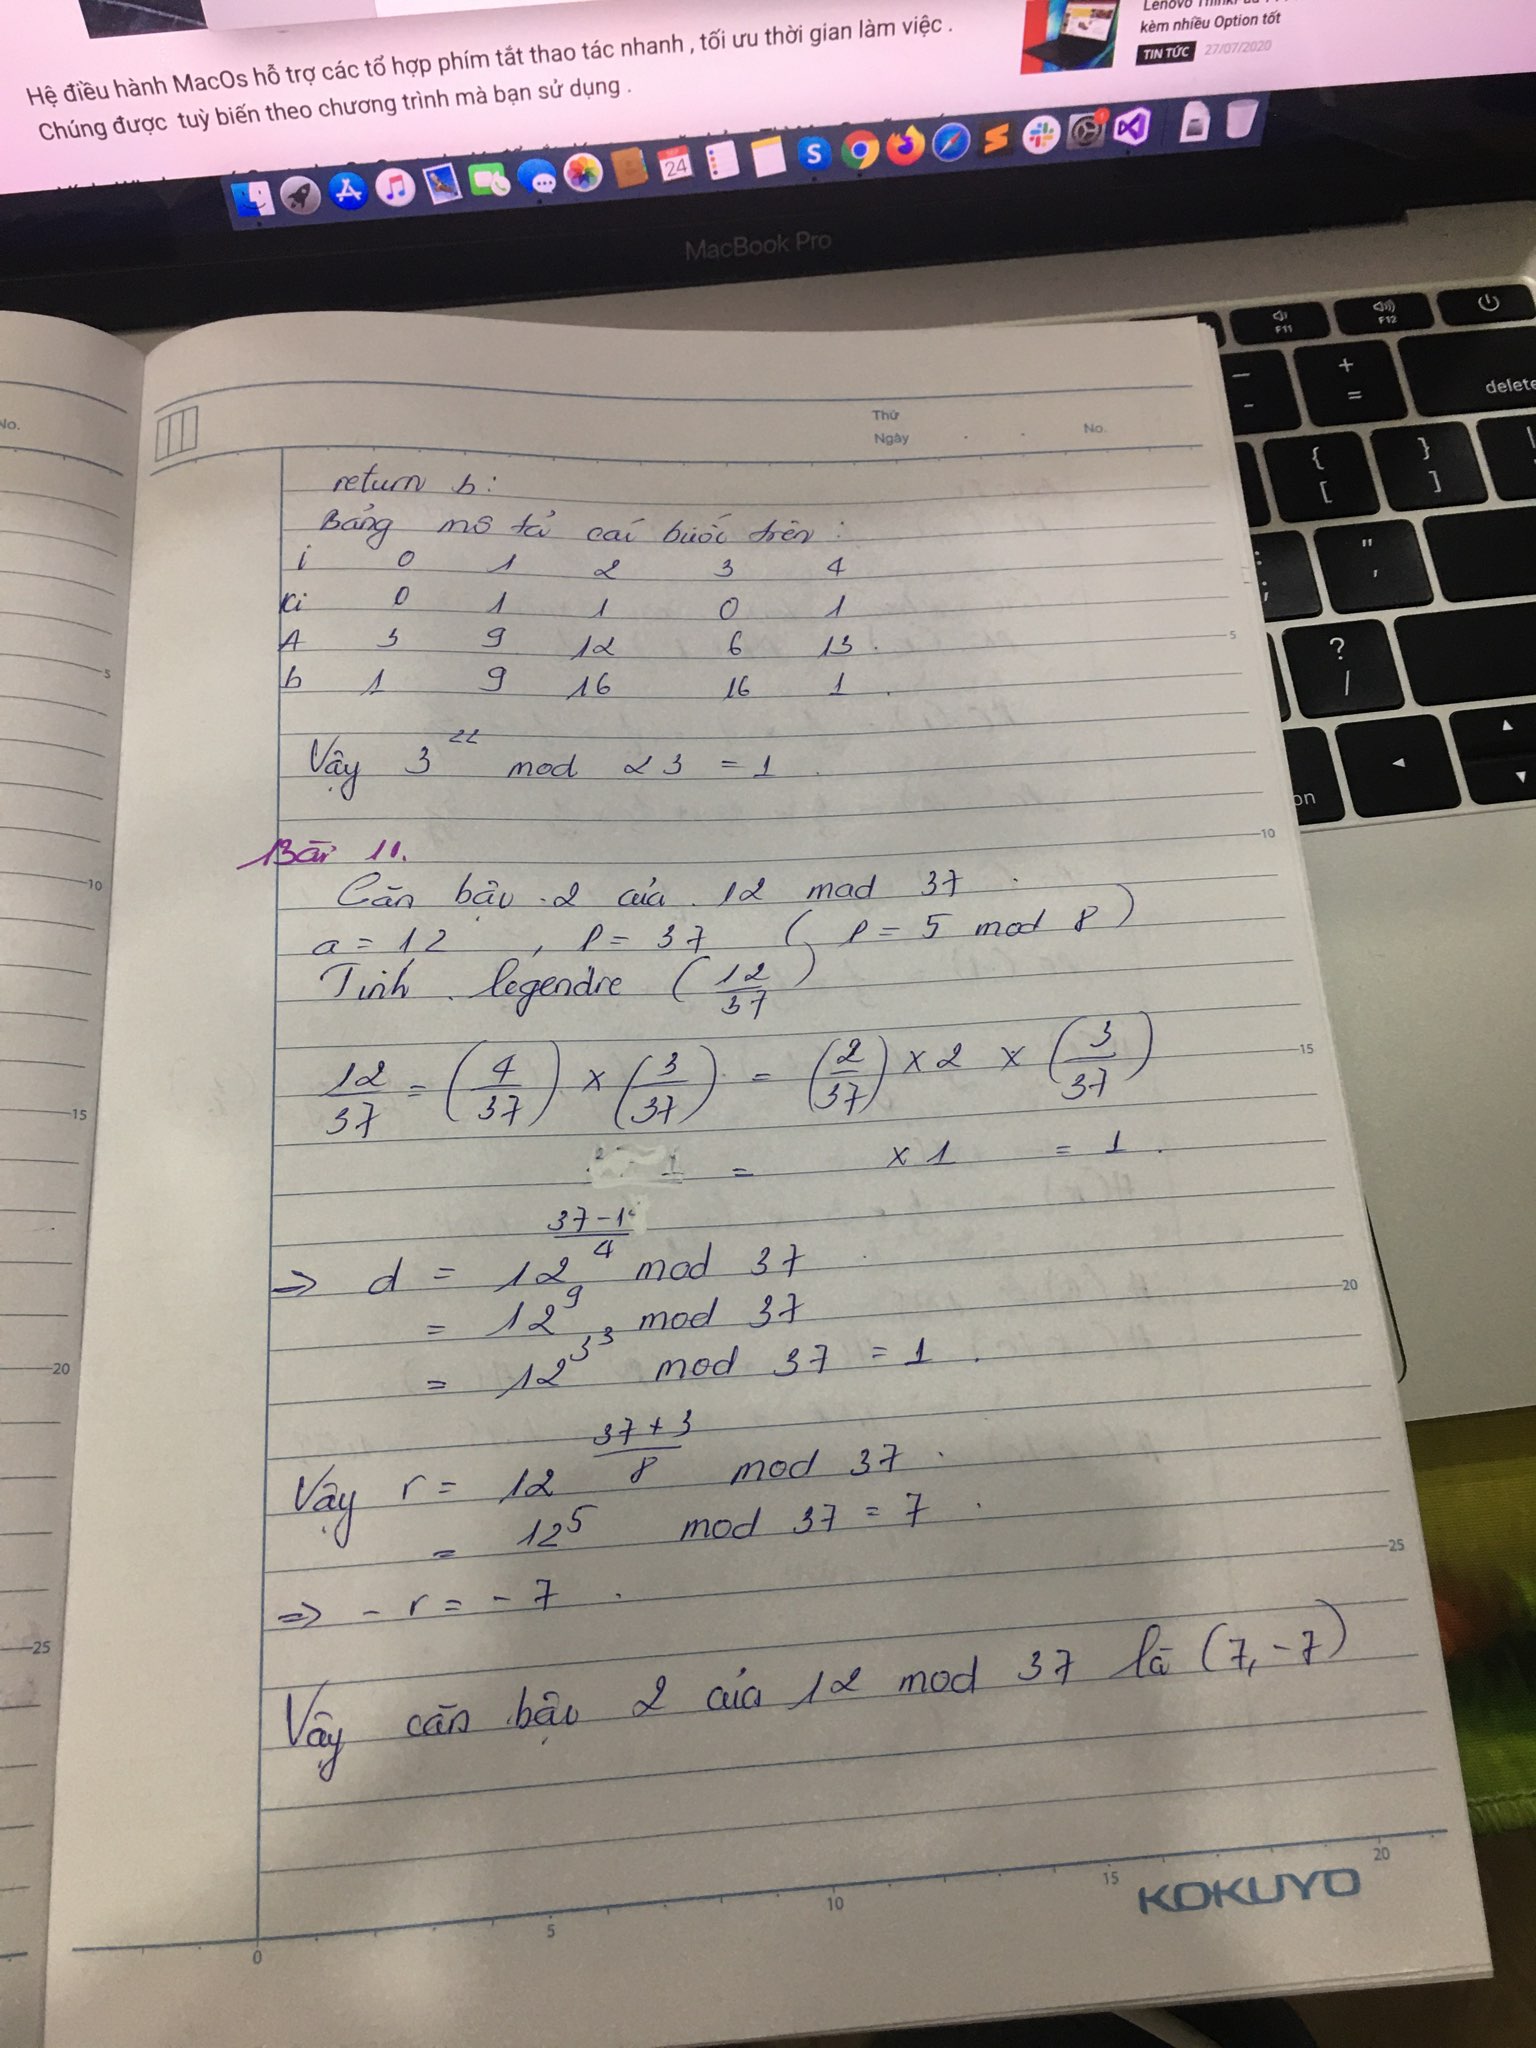 Hệ điều hành MacOs hỗ trợ các tổ hợp phím tắt thao tác nhanh , tối ưu thời gian làm việc .
Chúng được tuỳ biến theo chương trình mà bạn sử dụng .
kèm nhiều Option tốt
TIN TỨC 27/07/2020
24
MacBook Pro
F11
F12
delete
+
=
{
[
}
]
?
/
No.
Thứ
Ngày . . No.
return b:
Bảng mô tả các bước trên :
i 0 1 2 3 4
Ki 0 1 1 0 1
A 3 9 12 6 13 .
b 1 9 16 16 1 .
Vậy 3^22 mod 23 = 1 .
Bài 11.
Căn bậc 2 của 12 mod 37 .
a = 12 , P = 37 ( P = 5 mod 8 )
Tính legendre (12/37)
12/37 = (4/37) x (3/37) = (2/37) x 2 x (3/37)
= x 1 = 1 .
=> d = 12^((37-1)/4) mod 37
= 12^9 mod 37
= 12^3^3 mod 37 = 1 .
Vậy r = 12^((37+3)/8) mod 37 .
= 12^5 mod 37 = 7 .
=> - r = - 7 .
Vậy căn bậc 2 của 12 mod 37 là (7, -7)
5
10
15
20
25
5
10
15
20
25
0
5
10
15
20
KOKUYO